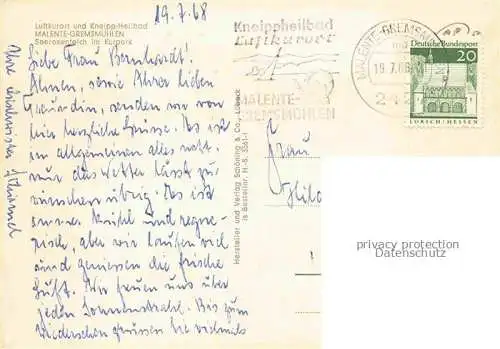 19.7.68
Luftkurort und Kneipp-Heilbad
MALENTE-GREMSMÜHLEN
Seerosenteich im Kurpark
Liebe Frau Bernhardt!
Ihnen, sowie Ihrer lieben
senden wir von
hier herzliche Grüsse. Es ist
im allgemeinen alles nett.
nur das Wetter lässt zu
wünschen übrig. Es ist
immer kühl und regne-
risch, aber wir laufen viel
und geniessen die frische
Luft. Wir freuen uns über
jeden Sonnenstrahl. Bis zum
Wiedersehen grüssen Sie vielmals
Ihre
Hersteller und Verlag Schöning & Co., Lübeck
Bestellnr. H.-S. 5561-1
Kneippheilbad
Luftkurort
MALENTE-
GREMSMÜHLEN
MALENTE-GREMSMÜHLEN
19.7.68
Deutsche Bundespost
20
LORSCH/HESSEN
Frau
privacy protection
Datenschutz